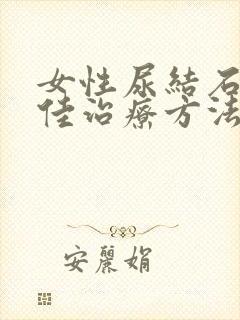 女性尿結石
佳治療方法
安麗娟